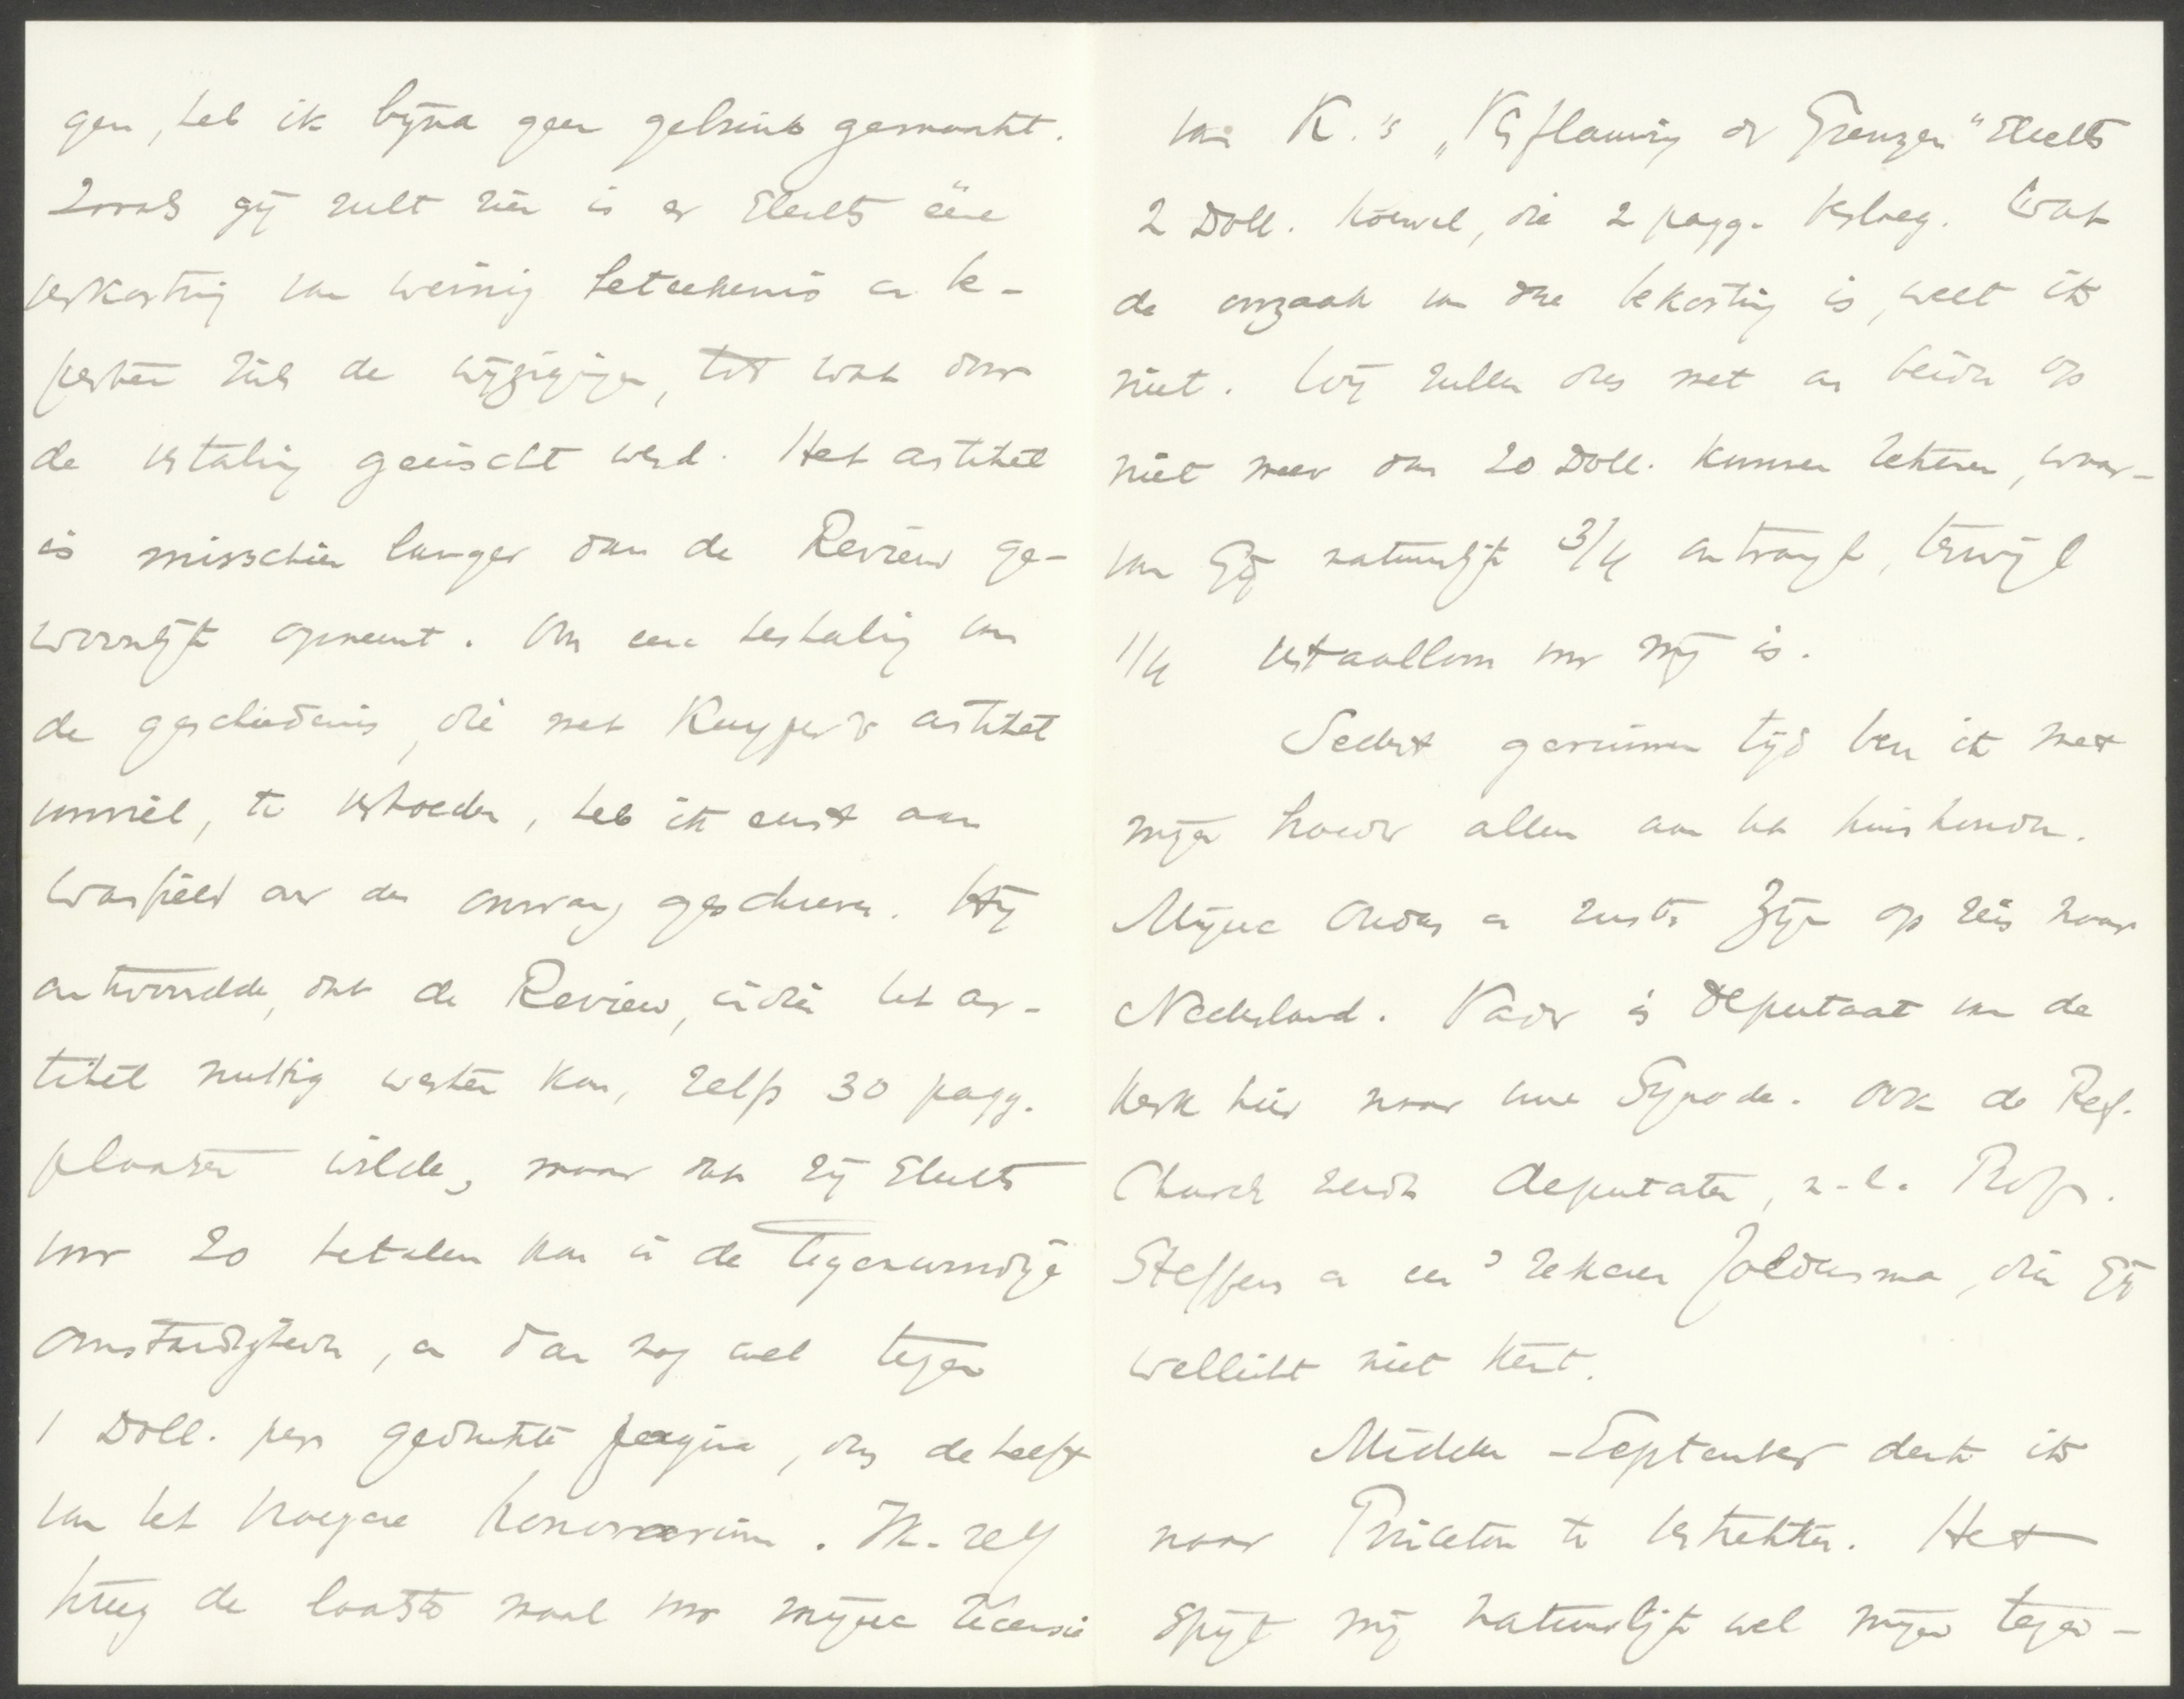 gen, heb ik bijna geen gebruik gemaakt.
Zooals gij zult zien is er slechts ééne
verkorting van weinig beteekenis en be-
perken zich de wijzigingen tot wat door
de vertaling geëischt werd. Het artikel
is misschien langer dan de Review ge-
woonlijk opneemt. Om eene herhaling van
de geschiedenis, die met Kuyper's artikel
voorviel, te verhoeden, heb ik eerst aan
Warfield over den omvang geschreven. Hij
antwoordde, dat de Review, indien het ar-
tikel nuttig werken kon, zelfs 30 pagg.
plaatsen wilde, maar dat zij slechts
voor 20 betalen kon in de tegenwoordige
omstandigheden, en dan nog wel tegen
1 Doll. per gedrukte pagina, dus de helft
van het vroegere honorarium. Ik-zelf
kreeg de laatste maal voor mijne recensie
van K.'s „Verflauwing der Grenzen" slechts
2 Doll. hoewel, die 2 pagg. besloeg. Wat
de oorzaak van deze bekorting is, weet ik
niet. Wij zullen dus met ons beiden op
niet meer dan 20 Doll. kunnen rekenen, waar-
van Gij natuurlijk 3/4 ontvangt, terwijl
1/4 vertaalloon voor mij is.
Sedert geruimen tijd ben ik met
mijn broeder alleen aan het huishouden.
Mijne Ouders en zuster zijn op reis naar
Nederland. Vader is deputaat van de
Kerk hier naar uwe Synode. Ook de Ref.
Church zendt deputaten, n.l. Prof.
Steffens en een zekeren Joldersma, dien Gij
wellicht niet kent.
Midden-September denk ik
naar Princeton te vertrekken. Het
spijt mij natuurlijk wel mijn tegen-